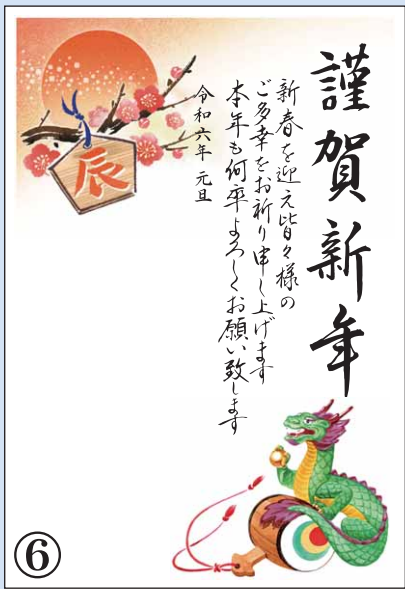 謹賀新年
新春を迎え皆々様の
ご多幸をお祈り申し上げます
本年も何卒よろしくお願い致します
令和六年 元旦
辰
⑥